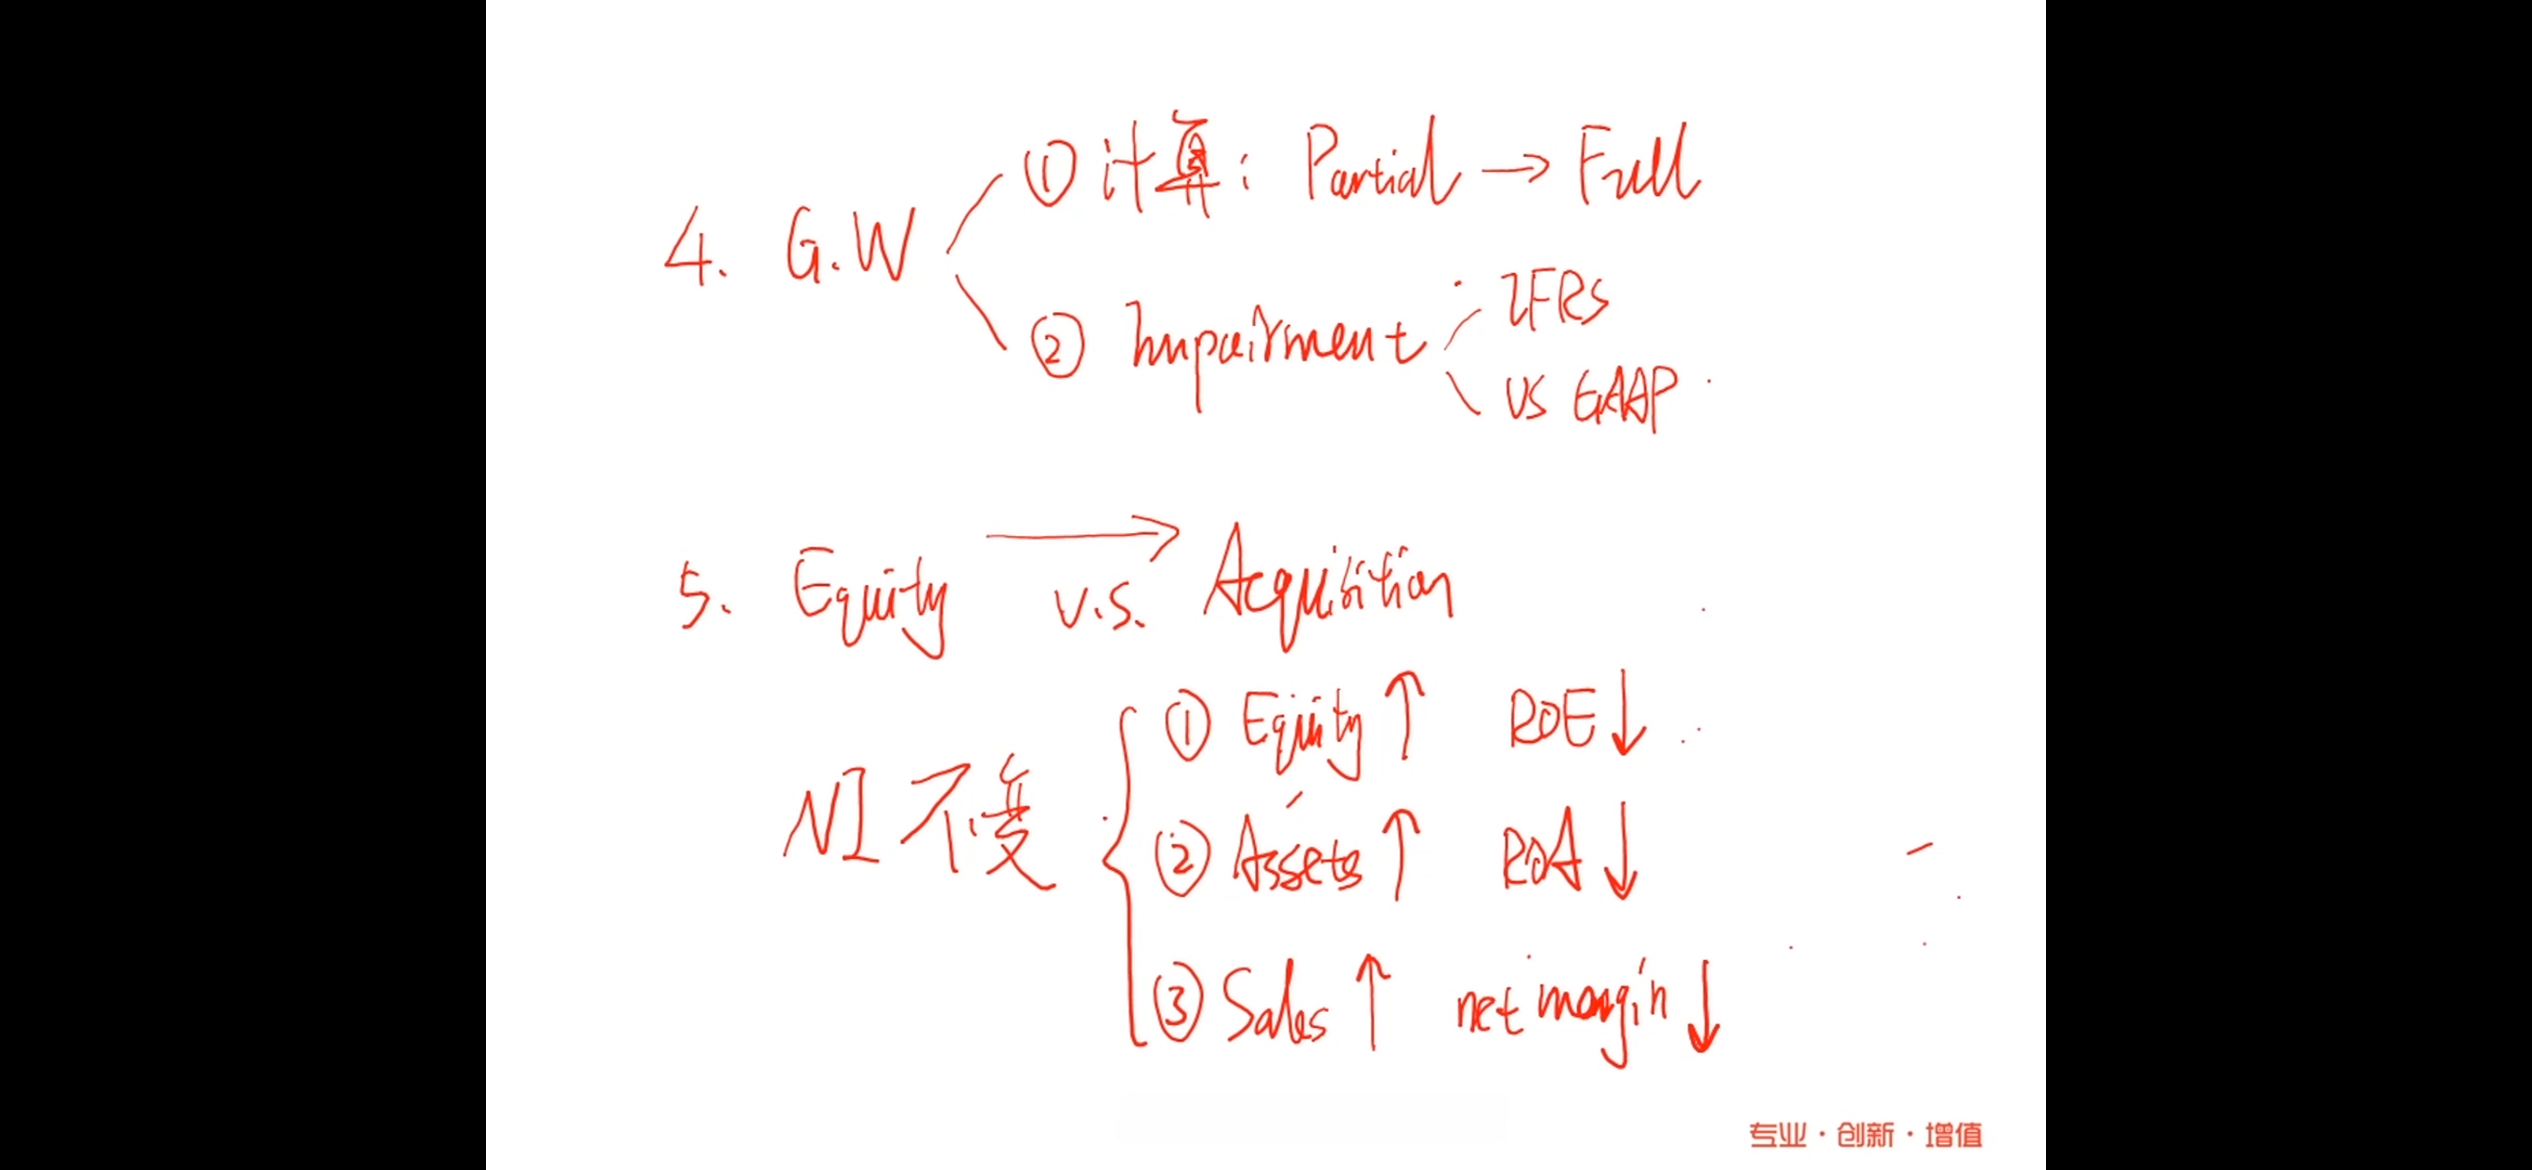 ① 计算: Partial → Full
4. G.W
② Impairment
IFRS
US GAAP
5. Equity v.s. → Acquisition
① Equity ↑ ROE ↓
NI 不变
② Assets ↑ ROA ↓
③ Sales ↑ net margin ↓
专业·创新·增值